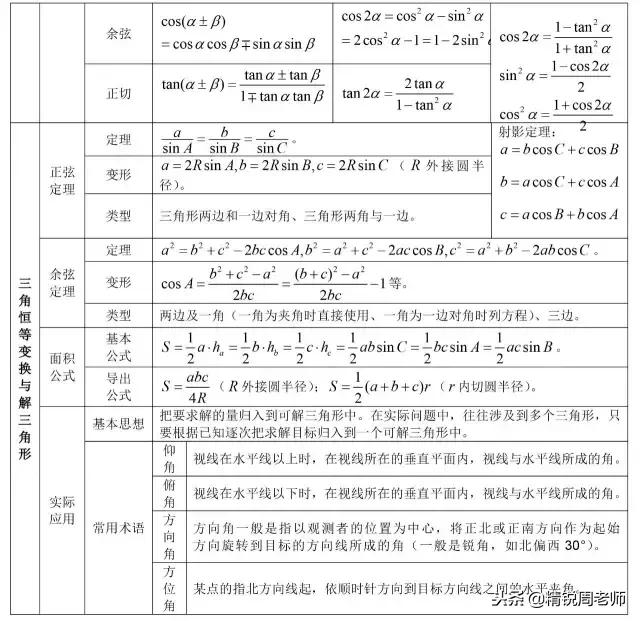 余弦
cos(α±β)
=cosαcosβ∓sinαsinβ
cos2α=cos²α−sin²α
=2cos²α−1=1−2sin²
cos2α=\frac{1−tan²α}{1+tan²α}
sin²α=\frac{1−cos2α}{2}
cos²α=\frac{1+cos2α}{2}
正切
tan(α±β)=\frac{tanα±tanβ}{1∓tanαtanβ}
tan2α=\frac{2tanα}{1−tan²α}
三角恒等变换与解三角形
正弦
定理
定理
\frac{a}{sinA}=\frac{b}{sinB}=\frac{c}{sinC}。
射影定理:
a=bcosC+ccosB
b=acosC+ccosA
c=acosB+bcosA
变形
a=2RsinA,b=2RsinB,c=2RsinC(R外接圆半
径)。
类型
三角形两边和一边对角、三角形两角与一边。
余弦
定理
定理
a²=b²+c²−2bccosA,b²=a²+c²−2accosB,c²=a²+b²−2abcosC。
变形
cosA=\frac{b²+c²−a²}{2bc}=\frac{(b+c)²−a²}{2bc}−1等。
类型
两边及一角(一角为夹角时直接使用、一角为一边对角时列方程)、三边。
面积
公式
基本
公式
S=\frac{1}{2}a·hₐ=\frac{1}{2}b·h_b=\frac{1}{2}c·h_c=\frac{1}{2}absinC=\frac{1}{2}bcsinA=\frac{1}{2}acsinB。
导出
公式
S=\frac{abc}{4R}(R外接圆半径);S=\frac{1}{2}(a+b+c)r(r内切圆半径)。
实际
应用
基本思想
把要求解的量归入到可解三角形中。在实际问题中,往往涉及到多个三角形,只
要根据已知逐次把求解目标归入到一个可解三角形中。
常用术语
仰角
视线在水平线以上时,在视线所在的垂直平面内,视线与水平线所成的角。
俯角
视线在水平线以下时,在视线所在的垂直平面内,视线与水平线所成的角。
方向角
方向角一般是指以观测者的位置为中心,将正北或正南方向作为起始
方向旋转到目标的方向线所成的角(一般是锐角,如北偏西30°)。
方位角
某点的指北方向线起,依顺时针方向到目标方向线之间的水平夹角。
头条@精锐周老师